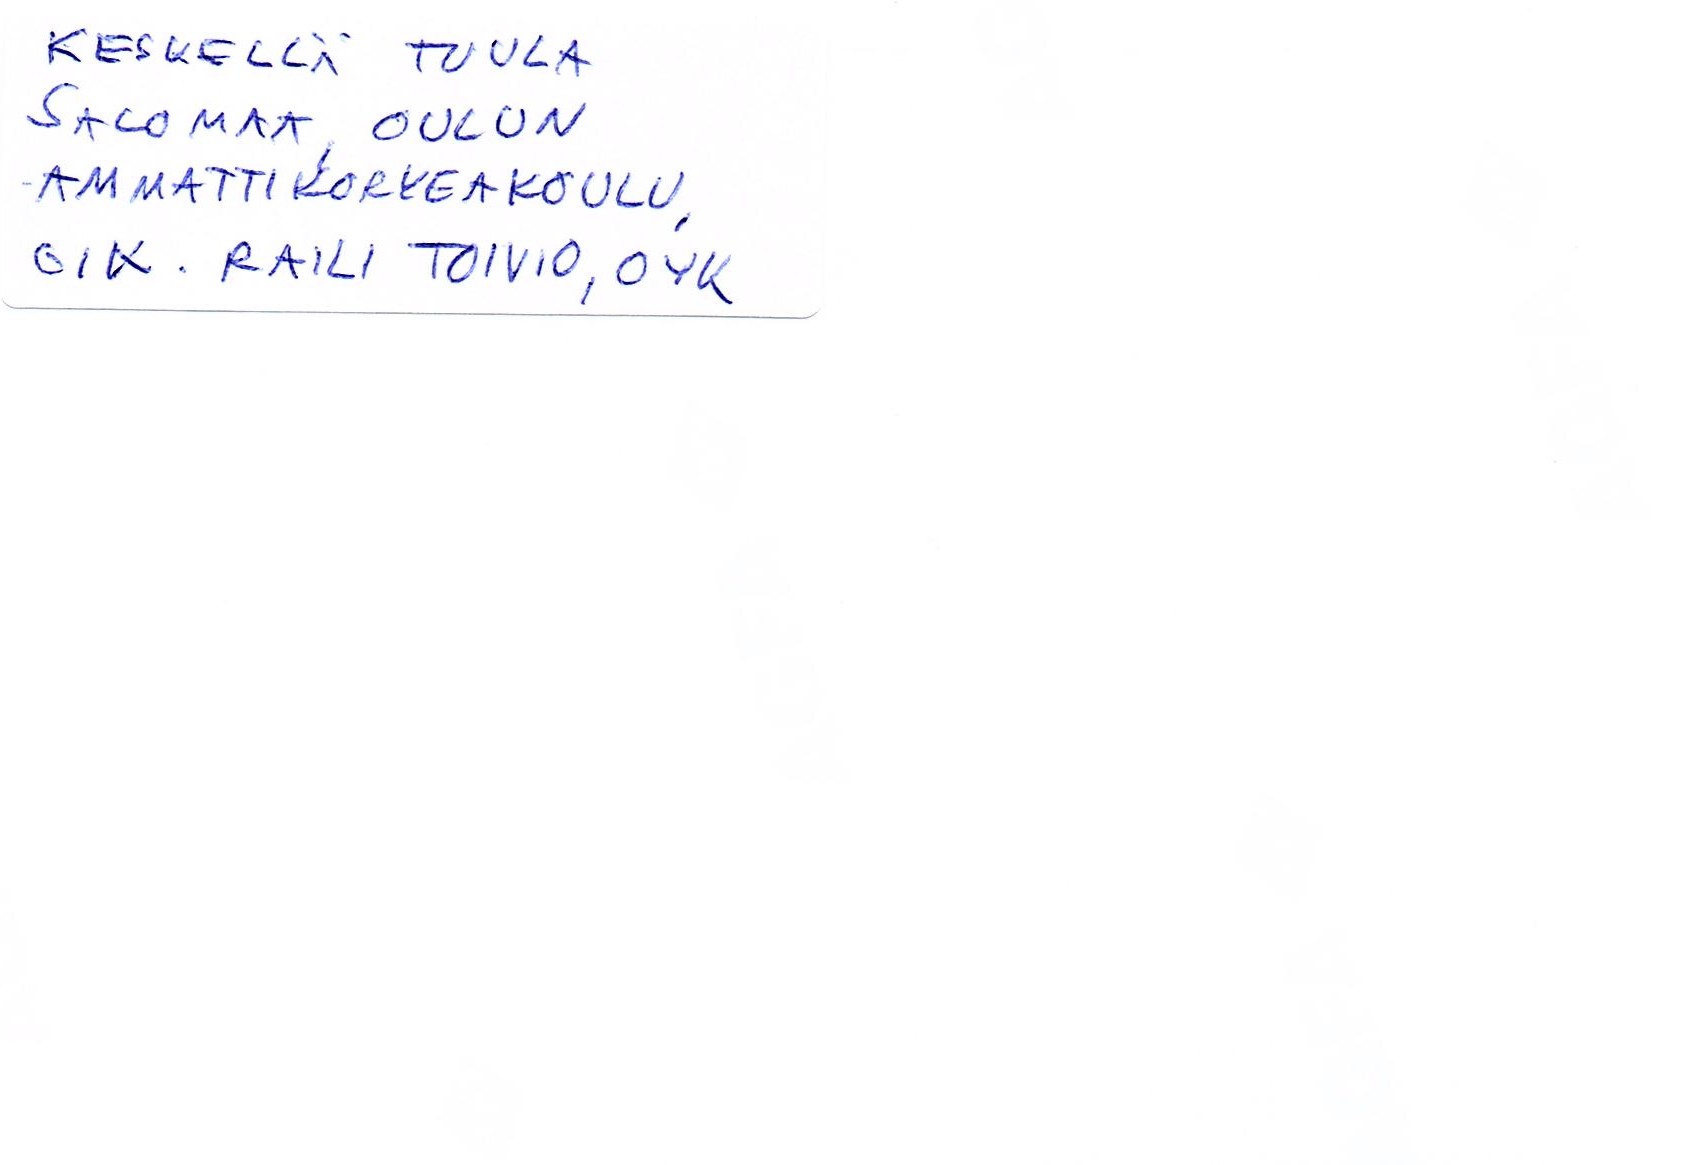 KESKELLÄ TUULA
SALOMAA, OULUN
AMMATTIKORKEAKOULU,
OIK. RAILI TOIVIO, OYK